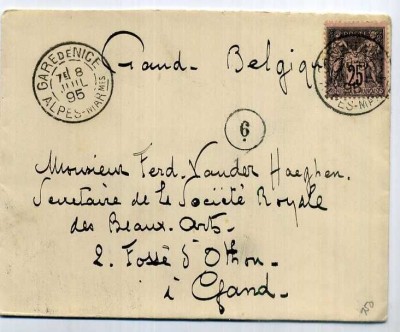 GARE DE NICE
7E 8
JUIL
95
ALPES-MARMES
Gand - Belgique
25
6
Monsieur Ferd. Vander Haeghen.
Secretaire de la Société Royale
des Beaux-Arts-
2. Fossé d'Othon-
à Gand-
250